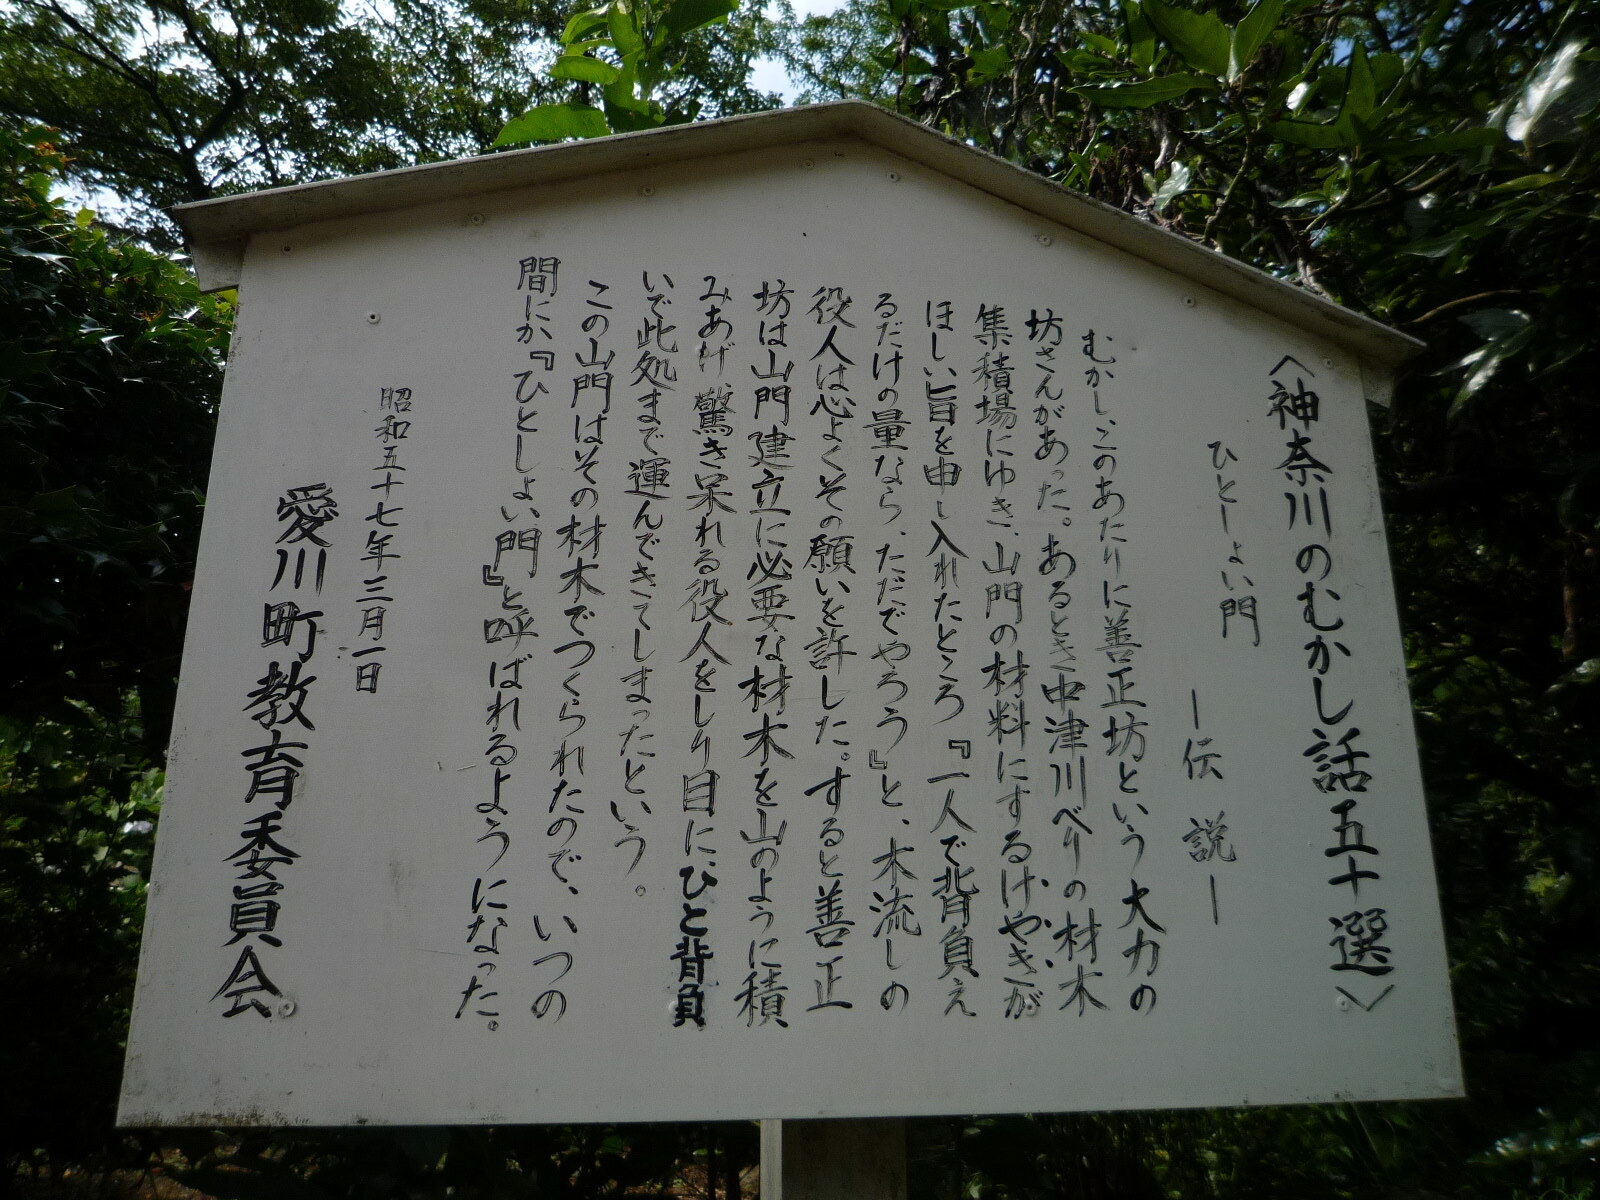 〈神奈川のむかし話五十選〉
ひとしょい門
―伝説―
むかし、このあたりに善正坊という大力の
坊さんがあった。あるとき中津川べりの材木
集積場にゆき、山門の材料にするけやきが
ほしい旨を申し入れたところ『一人で背負え
るだけの量なら、ただでやろう』と、木流しの
役人は心よくその願いを許した。すると善正
坊は山門建立に必要な材木を山のように積
みあげ、驚き呆れる役人をしり目にひと背負
いで此処まで運んできてしまったという。
この山門はその材木でつくられたので、いつの
間にか『ひとしょい門』と呼ばれるようになった。
昭和五十七年三月一日
愛川町教育委員会。